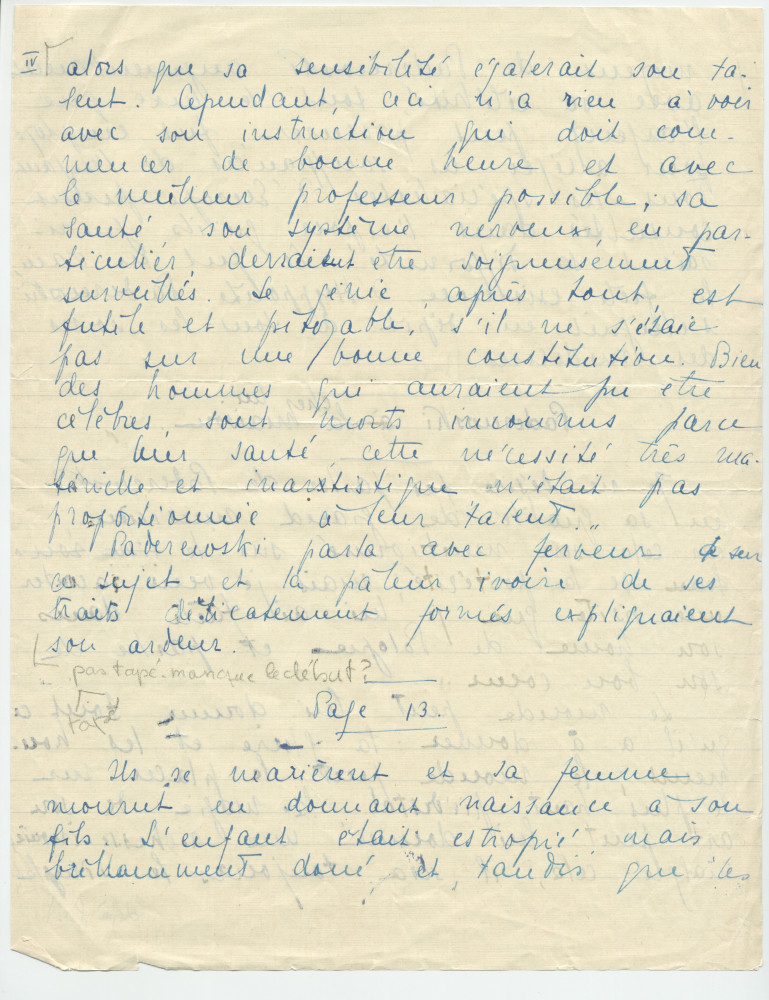 IV alors que sa sensibilité égalerait son ta-
lent. Cependant, ceci n'a rien à voir
avec son instruction qui doit com-
mencer de bonne heure et avec
le meilleur professeur possible; sa
santé son système nerveux, en par-
ticulier, devraient être soigneusement
surveillés. Le génie après tout, est
futile et pitoyable, s'il ne s'étaie
pas sur une bonne constitution. Bien
des hommes qui auraient pu être
célèbres, sont morts inconnus parce
que leur santé, cette nécessité très ma-
térielle et inartistique n'était pas
proportionnée à leur talent "
Paderewski parla avec ferveur sur
ce sujet et la pâleur ivoire de ses
traits délicatement formés expliquaient
son ardeur.
pas tapé. manque le début?
tapé
Page 13.
Ils se marièrent et sa femme
mourut en donnant naissance à son
fils. L'enfant était estropié mais
brillamment doué, et, tandis que les